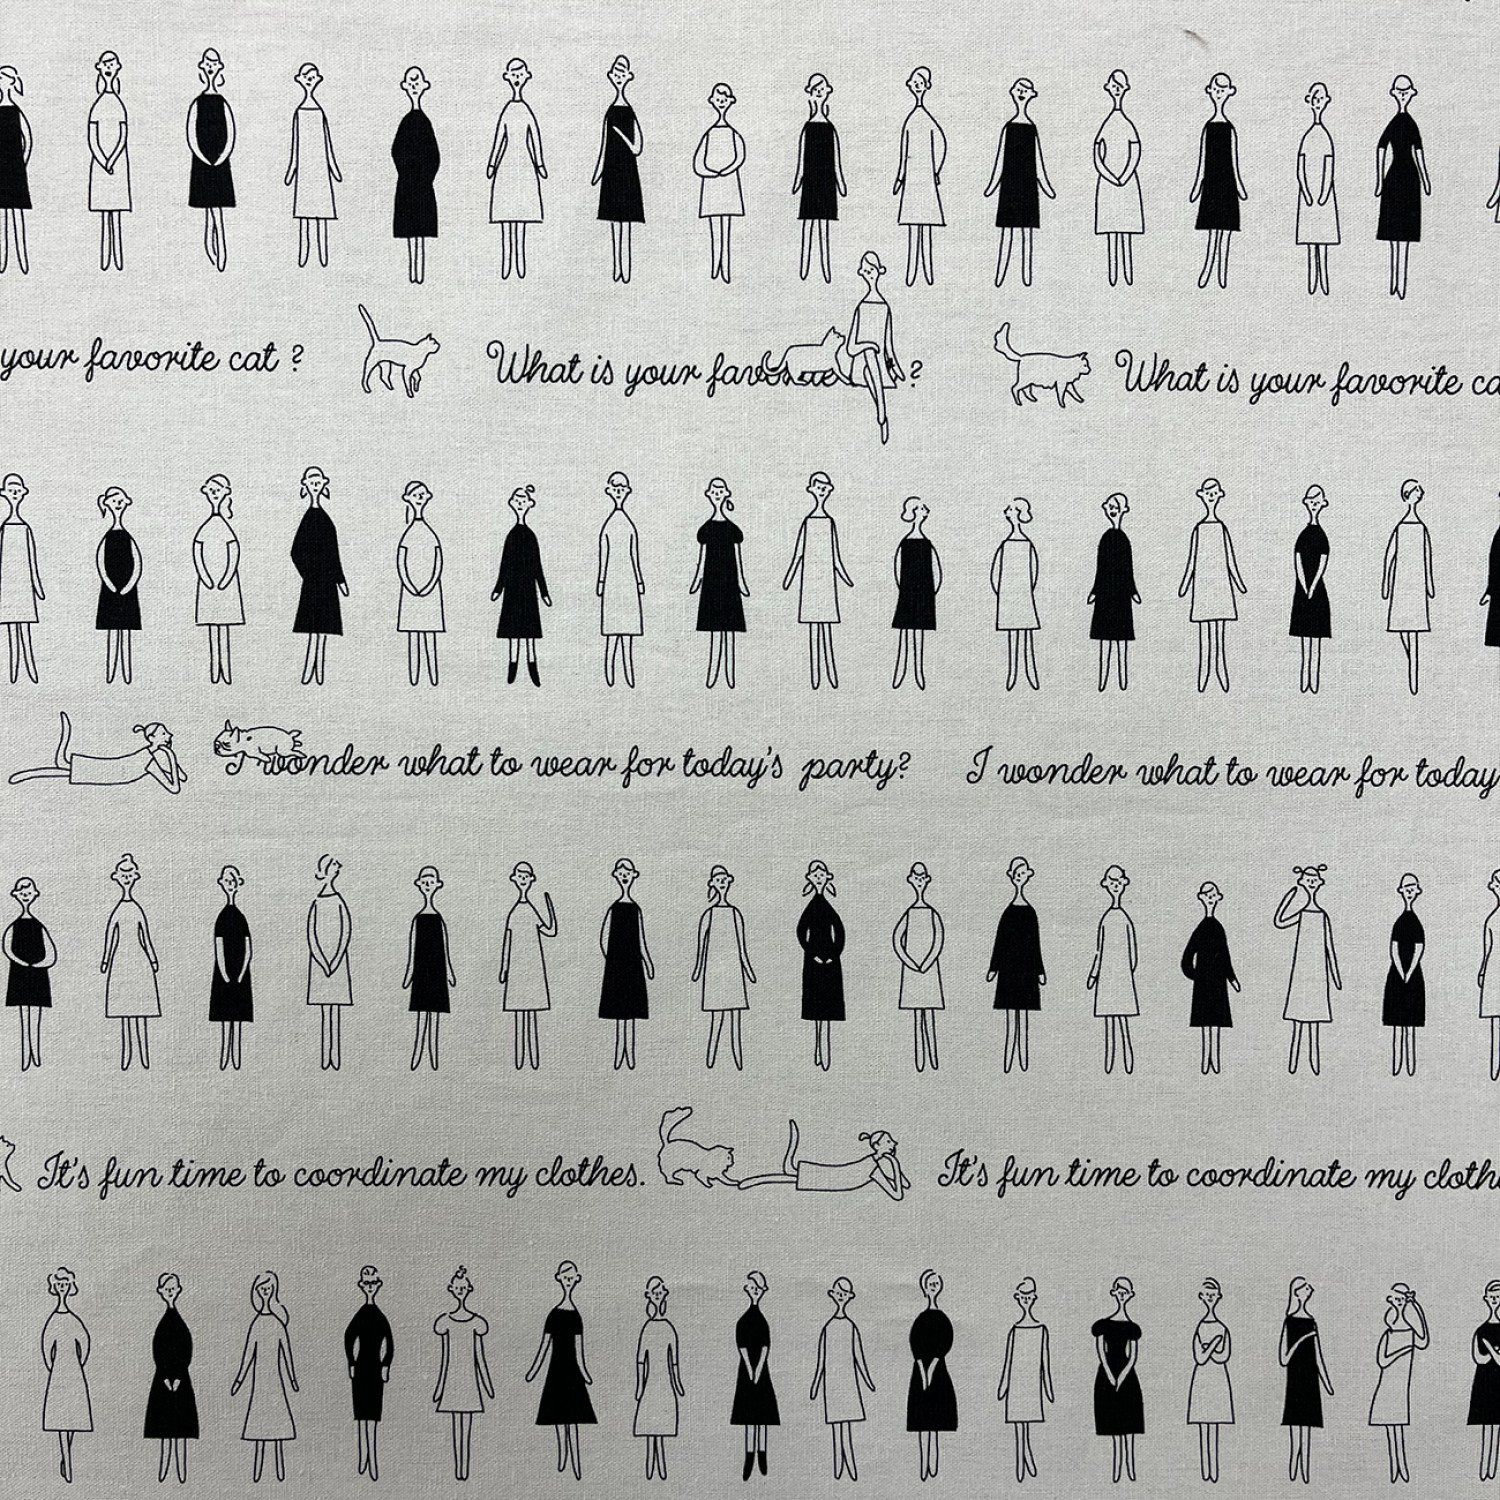 your favorite cat ? What is your favorite ? What is your favorite ca
I wonder what to wear for today's party? I wonder what to wear for today
It's fun time to coordinate my clothes. It's fun time to coordinate my cloth